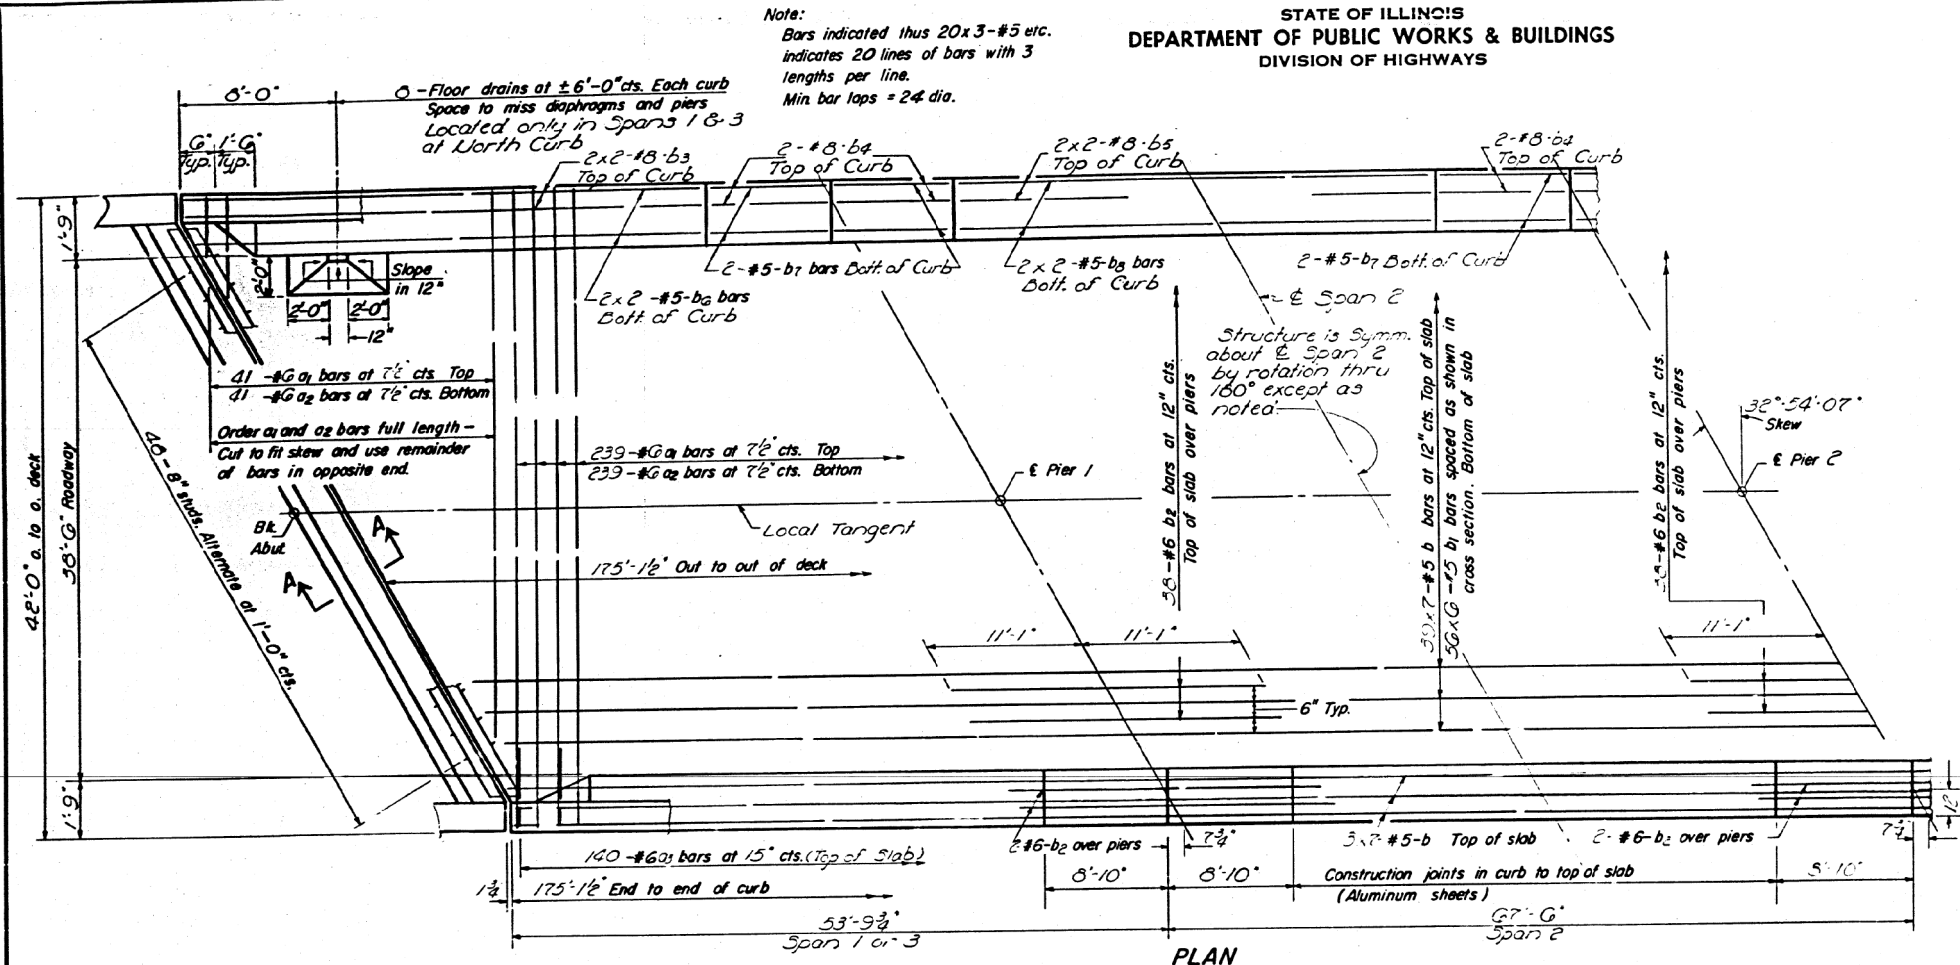 Note:
Bars indicated thus 20x3-#5 etc.
indicates 20 lines of bars with 3
lengths per line.
Min bar laps = 24 dia.
STATE OF ILLINOIS
DEPARTMENT OF PUBLIC WORKS & BUILDINGS
DIVISION OF HIGHWAYS
8'-0"
8-Floor drains at ±6'-0"cts. Each curb
Space to miss diaphragms and piers
Located only in Spans 1 & 3
at North Curb
6" 1'-6"
Typ. Typ.
2x2-#8-b3
Top of Curb
2-#8-b4
Top of Curb
2x2-#8-b5
Top of Curb
2-#8-b4
Top of Curb
1'-9"
2'-0"
Slope
in 12"
2'-0" 2'-0"
12"
2-#5-b7 bars Bott. of Curb
2x2-#5-b6 bars
Bott. of Curb
2x2-#5-b8 bars
Bott. of Curb
2-#5-b7 Bott. of Curb
℄ Span 2
Structure is Symm.
about ℄ Span 2
by rotation thru
180° except as
noted
41-#6 a1 bars at 7½" cts. Top
41-#6 a2 bars at 7½" cts. Bottom
Order a1 and a2 bars full length-
Cut to fit skew and use remainder
of bars in opposite end.
239-#6 a1 bars at 7½" cts. Top
239-#6 a2 bars at 7½" cts. Bottom
42'-0" o. to o. deck
38'-6" Roadway
1'-9"
studs. Alternate at 1'-0" cts.
Bk.
Abut.
A
A
Local Tangent
175'-1½" Out to out of deck
℄ Pier 1
38-#6 b2 bars at 12" cts.
Top of slab over piers
39x7-#5 b bars at 12" cts. Top of slab
56x6-#5 b1 bars spaced as shown in
cross section. Bottom of slab
38-#6 b2 bars at 12" cts.
Top of slab over piers
32°-54'-07"
Skew
℄ Pier 2
11'-1" 11'-1"
11'-1"
6" Typ.
140-#6a3 bars at 15" cts.(Top of Slab)
1¾"
175'-1½" End to end of curb
2-#6-b2 over piers
7¾"
3x7-#5-b Top of slab
2-#6-b2 over piers
7¾"
12"
8'-10"
8'-10"
Construction joints in curb to top of slab
(Aluminum sheets)
8'-10"
53'-9¾"
Span 1 or 3
67'-6"
Span 2
PLAN